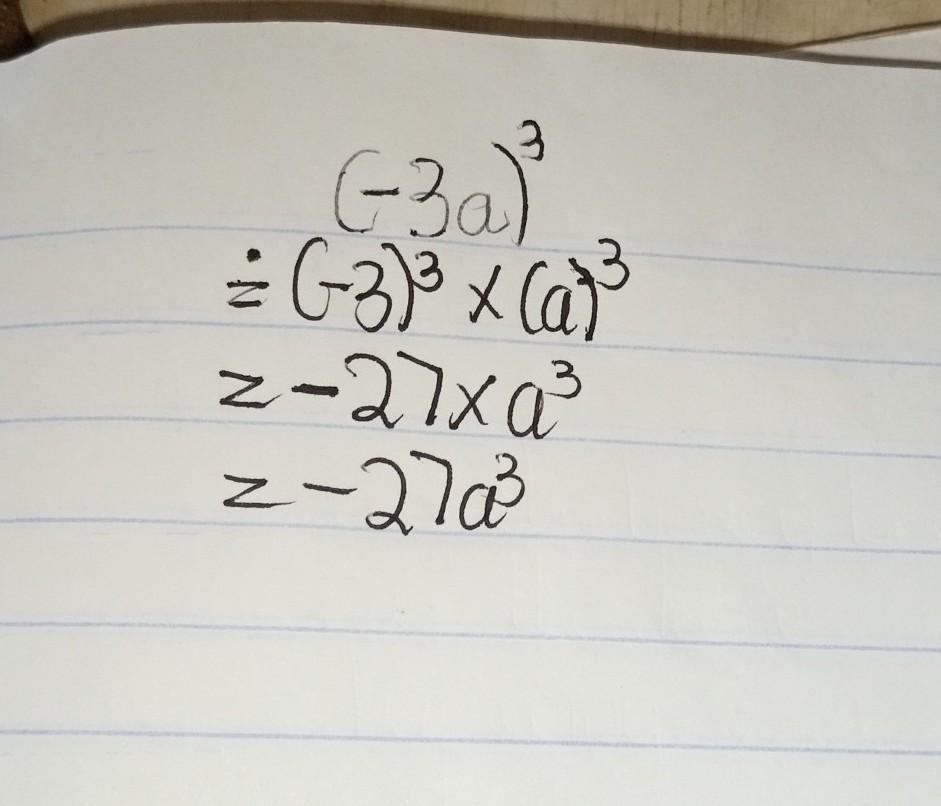 (-3a)³
≐ (-3)³ × (a)³
= -27 × a³
= -27a³